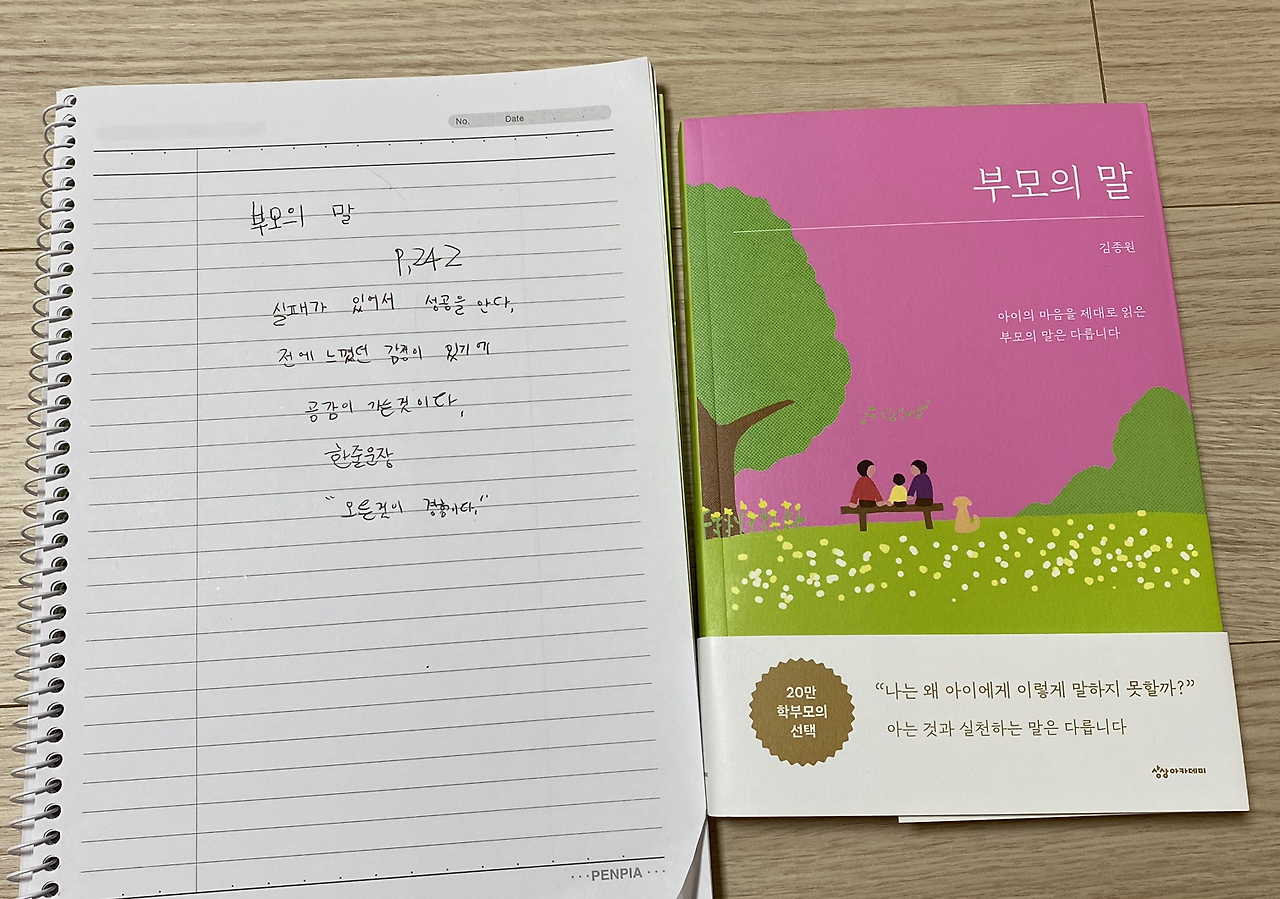 No. Date
부모의 말
P.242
실패가 있어서 성공을 안다.
전에 느꼈던 감정이 있기에
공감이 가는것이다.
한줄문장
"모든것이 경험이다."
PENPIA
부모의 말
김종원
아이의 마음을 제대로 읽은
부모의 말은 다릅니다
20만
학부모의
선택
“나는 왜 아이에게 이렇게 말하지 못할까?”
아는 것과 실천하는 말은 다릅니다
상상아카데미